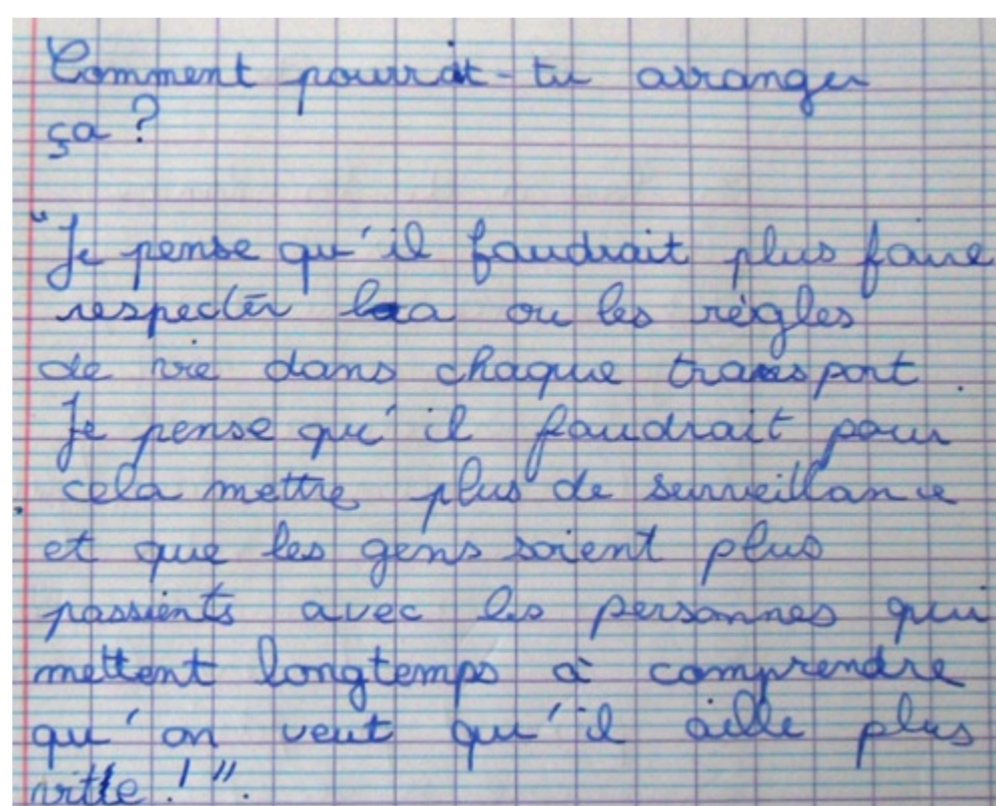 Comment pourrait-tu arranger
ça ?
"Je pense qu'il faudrait plus faire
respecter la ou les règles
de vie dans chaque transport.
Je pense qu'il faudrait pour
cela mettre plus de surveillance
et que les gens soient plus
passients avec les personnes qui
mettent longtemps à comprendre
qu'on veut qu'il aille plus
vitte !".